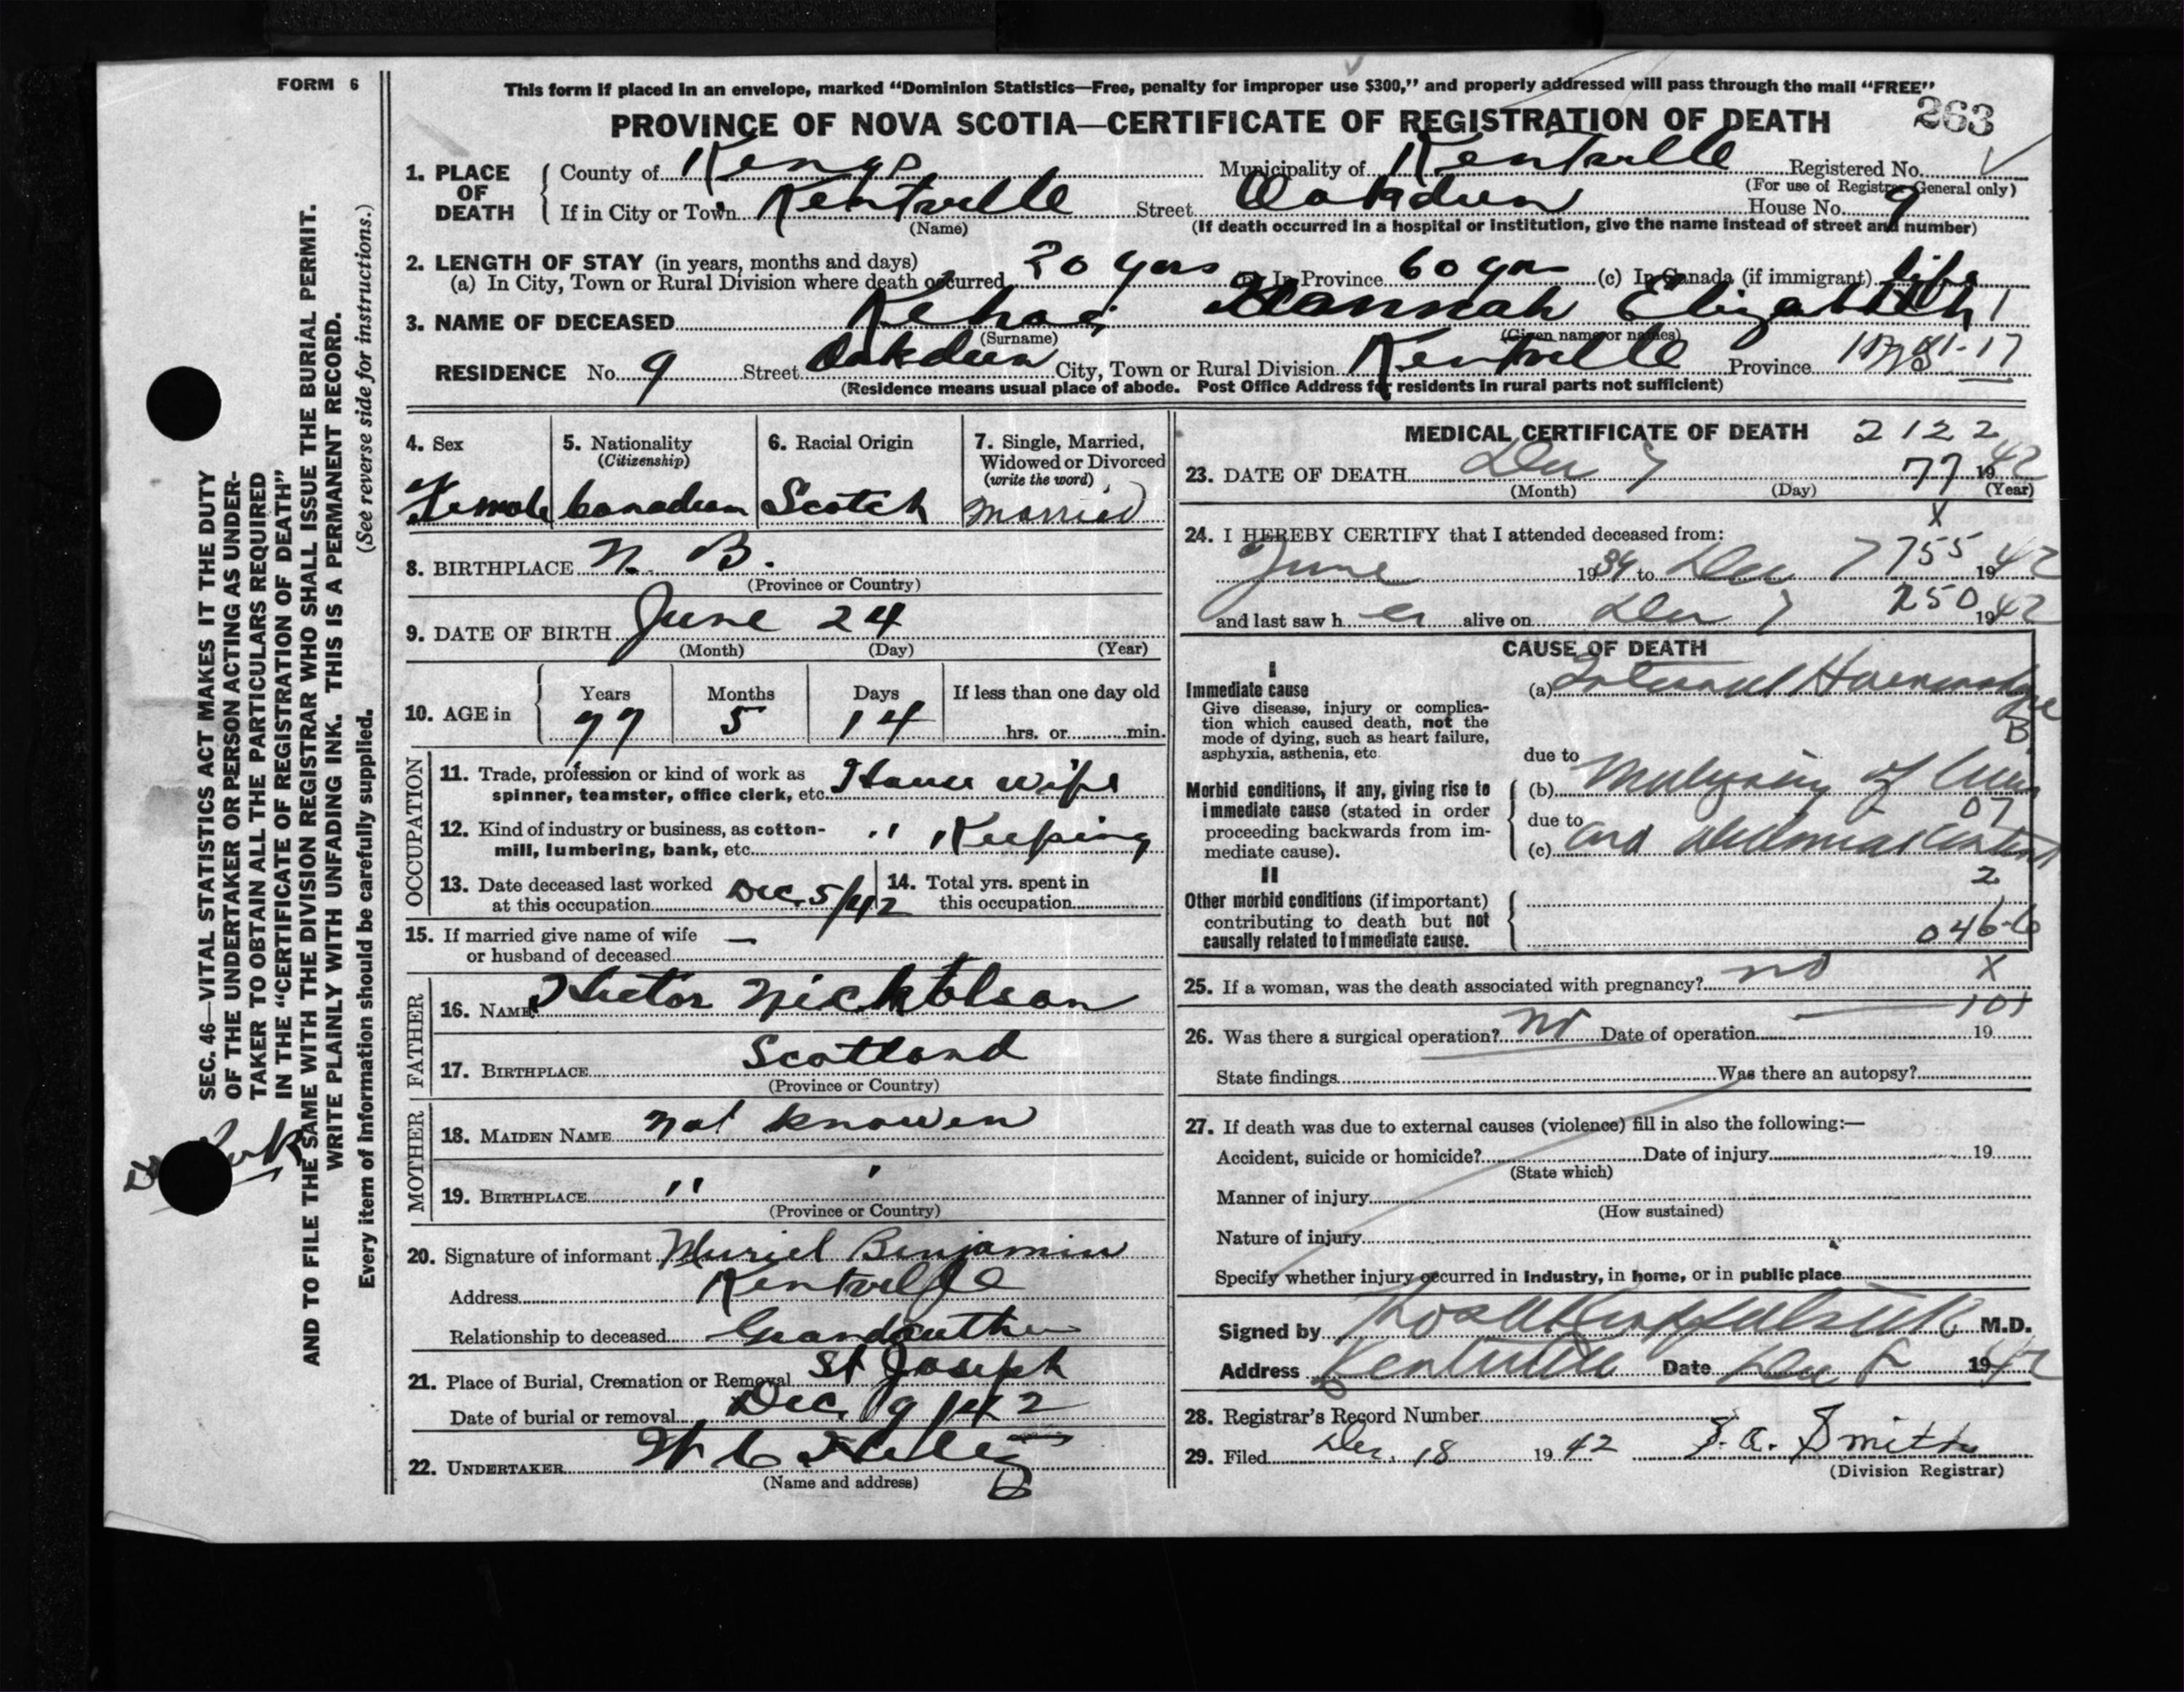 FORM 6
This form if placed in an envelope, marked "Dominion Statistics—Free, penalty for improper use $300," and properly addressed will pass through the mail "FREE"
PROVINCE OF NOVA SCOTIA—CERTIFICATE OF REGISTRATION OF DEATH 263
1. PLACE OF DEATH
County of Kings Municipality of Kentville Registered No.
(For use of Registrar General only)
If in City or Town Kentville Street Oakdeen House No. 9
(Name) (If death occurred in a hospital or institution, give the name instead of street and number)
2. LENGTH OF STAY (in years, months and days)
(a) In City, Town or Rural Division where death occurred 30 yrs In Province 60 yrs (c) In Canada (if immigrant) life
3. NAME OF DECEASED Kehoe Hannah Elizabeth
(Surname) (Given name or names)
RESIDENCE No. 9 Street Oakdeen City, Town or Rural Division Kentville Province
(Residence means usual place of abode. Post Office Address for residents in rural parts not sufficient)
SEC. 46—VITAL STATISTICS ACT MAKES IT THE DUTY
OF THE UNDERTAKER OR PERSON ACTING AS UNDER-
TAKER TO OBTAIN ALL THE PARTICULARS REQUIRED
IN THE "CERTIFICATE OF REGISTRATION OF DEATH"
AND TO FILE THE SAME WITH THE DIVISION REGISTRAR WHO SHALL ISSUE THE BURIAL PERMIT.
WRITE PLAINLY WITH UNFADING INK. THIS IS A PERMANENT RECORD.
Every item of information should be carefully supplied. (See reverse side for instructions.)
4. Sex
Female
5. Nationality
(Citizenship)
Canadian
6. Racial Origin
Scotch
7. Single, Married,
Widowed or Divorced
(write the word)
Married
8. BIRTHPLACE N. B.
(Province or Country)
9. DATE OF BIRTH June 24
(Month) (Day) (Year)
10. AGE in
Years Months Days If less than one day old
77 5 14 hrs. or min.
OCCUPATION
11. Trade, profession or kind of work as
spinner, teamster, office clerk, etc. House wife
12. Kind of industry or business, as cotton-
mill, lumbering, bank, etc. " Keeping
13. Date deceased last worked
at this occupation Dec. 5/42
14. Total yrs. spent in
this occupation
15. If married give name of wife
or husband of deceased —
FATHER
16. NAME Hector Nickolson
17. BIRTHPLACE Scotland
(Province or Country)
MOTHER
18. MAIDEN NAME not knowen
19. BIRTHPLACE " "
(Province or Country)
20. Signature of informant Muriel Benjamin
Address Kentville
Relationship to deceased
21. Place of Burial, Cremation or Removal St Joseph
Date of burial or removal Dec. 9/42
22. UNDERTAKER W C
(Name and address)
MEDICAL CERTIFICATE OF DEATH 2122
23. DATE OF DEATH Dec 7 77 1942
(Month) (Day) (Year)
24. I HEREBY CERTIFY that I attended deceased from: X
June 1939 to Dec 7 755 1942
and last saw her alive on Dec 7 250 1942
CAUSE OF DEATH
I
Immediate cause
Give disease, injury or complica-
tion which caused death, not the
mode of dying, such as heart failure,
asphyxia, asthenia, etc.
(a) Internal Haemorrhage
B
due to
Morbid conditions, if any, giving rise to
immediate cause (stated in order
proceeding backwards from im-
mediate cause).
(b) of Liver
07
due to
(c) and
II 2
Other morbid conditions (if important)
contributing to death but not
causally related to immediate cause.
046-6
25. If a woman, was the death associated with pregnancy? no X
101
26. Was there a surgical operation? no Date of operation 19
State findings Was there an autopsy?
27. If death was due to external causes (violence) fill in also the following:—
Accident, suicide or homicide? Date of injury 19
(State which)
Manner of injury
(How sustained)
Nature of injury
Specify whether injury occurred in industry, in home, or in public place
Signed by M.D.
Address Kentville Date Dec 1942
28. Registrar's Record Number
29. Filed Dec. 18 1942 Smith
(Division Registrar)